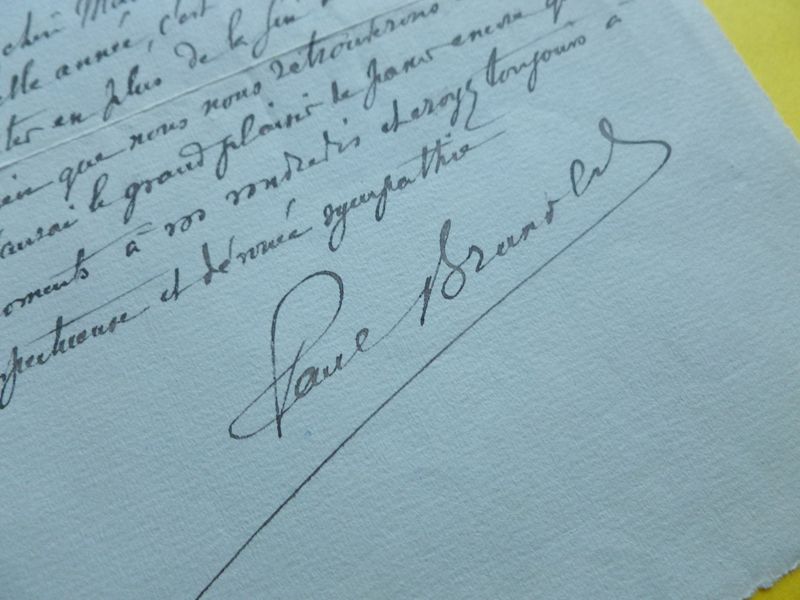 cher Maî
elle année, c'est
ter en plus de la fin
que nous nous retrouverons
aurai le grand plaisir de passer encore q
oments à vos vendredis et croyez toujours à
spectueuse et dévouée sympathie
Paul Brunold